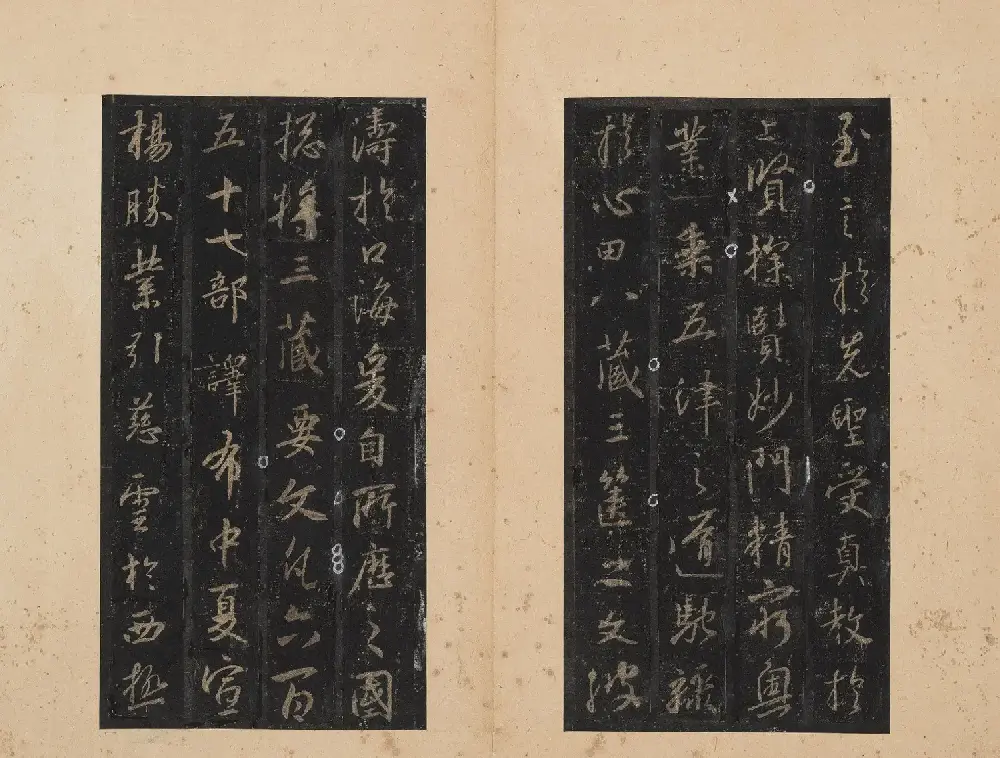 至言於先聖受真教於
上賢探賾妙門精窮奧
業一乘五律之道馳驟
於心田八藏三篋之文波
濤於口海爰自所歷之國
揔將三藏要文凡六百
五十七部譯布中夏宣
揚勝業引慈雲於西極